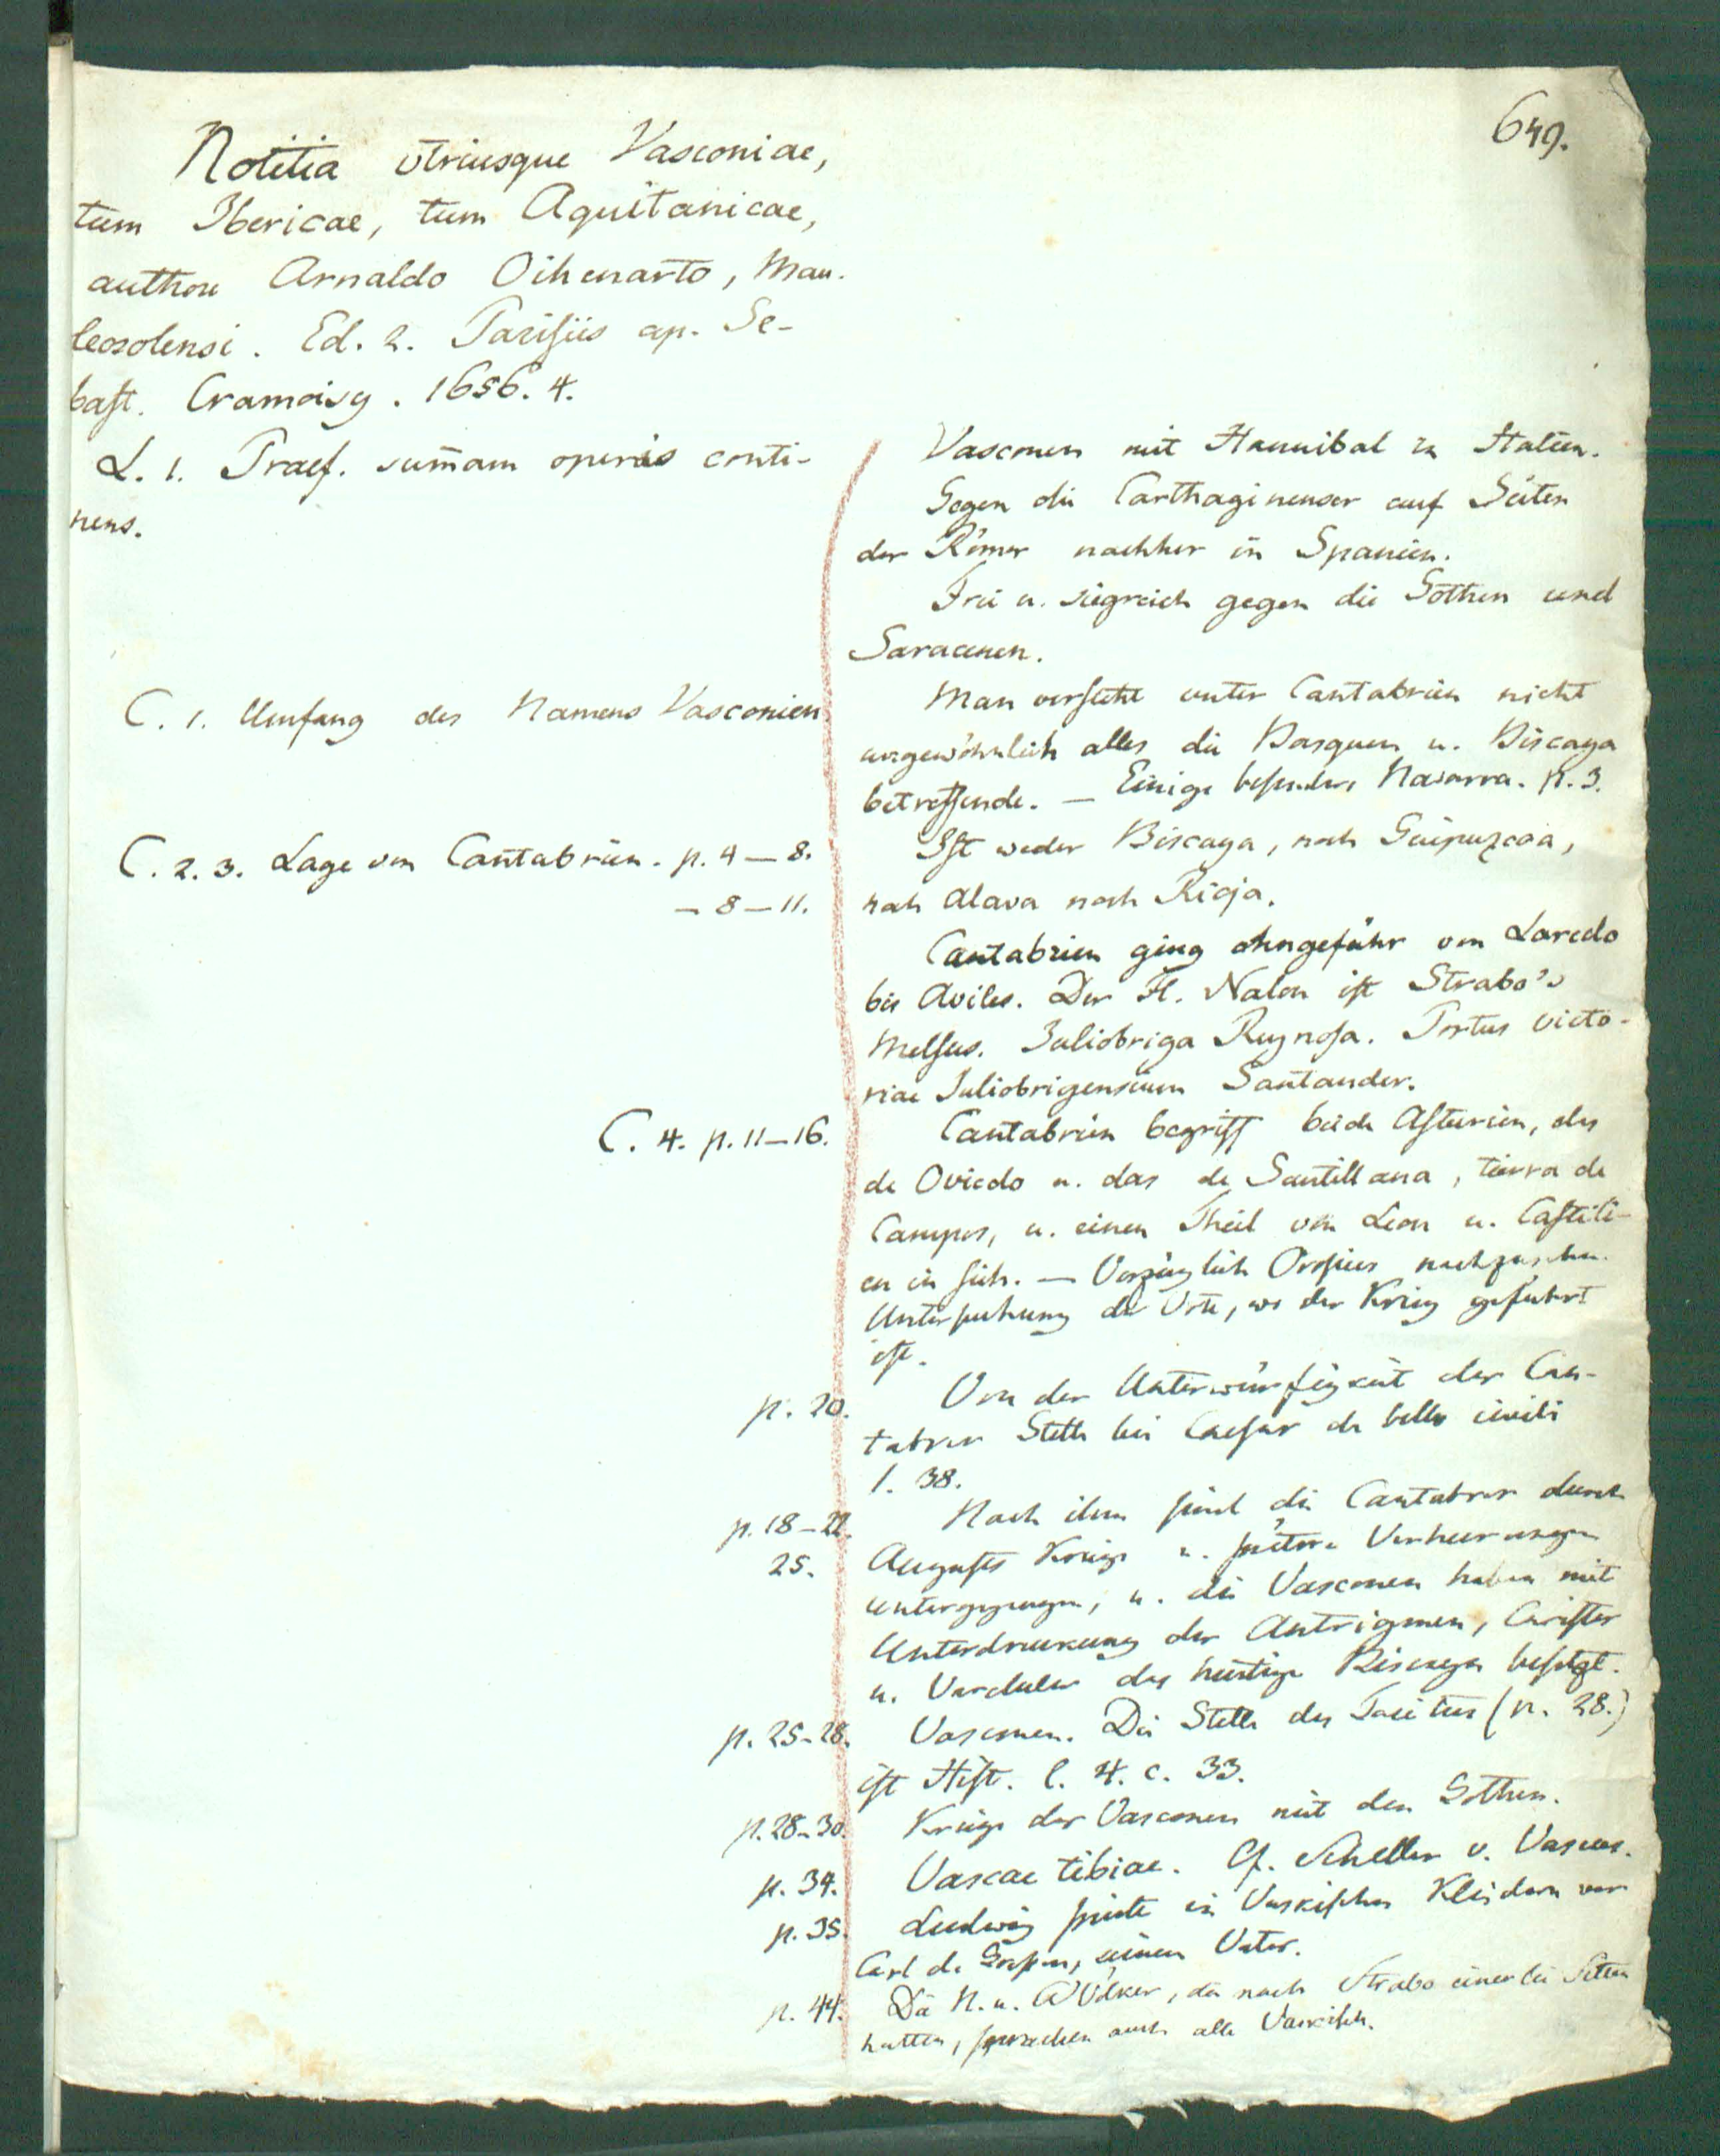 649.
Notitia utriusque Vasconiae,
tum Ibericae, tum Aquitanicae,
authore Arnaldo Oihenarto, Mau-
leosolensi. Ed. 2. Parisiis ap. Se-
bast. Cramoisy. 1656. 4.
L. 1. Praef. sum̄am operis conti-
nens.
Vasconen mit Hannibal in Italien.
Gegen die Carthaginenser auf Seiten
der Römer nachher in Spanien.
Frei u. siegreich gegen die Gothen und
Saracenen.
C. 1. Umfang des Namens Vasconien
Man versteht unter Cantabrien nicht
ungewöhnlich alles die Basquen u. Biscaya
betreffende. — Einige besonders Navarra. p. 3.
C. 2. 3. Lage von Cantabrien. p. 4—8.
— 8—11.
Ist weder Biscaya, noch Guipuzcoa,
noch Alava noch Rioja.
Cantabrien ging ohngefähr von Laredo
bis Aviles. Der Fl. Nalon ist Strabo's
Melsus. Juliobriga Reynosa. Portus victo-
riae Juliobrigensium Santander.
C. 4. p. 11—16.
Cantabrien begriff beide Asturien, das
de Oviedo u. das de Santillana, tierra de
Campos, u. einen Theil von Leon u. Castili-
en in sich. — Vorzüglich Orosius nachzusehn.
Untersuchung der Orte, wo der Krieg geführt
ist.
p. 20.
Von der Unterwürfigkeit der Can-
tabrer Stelle bei Caesar de bello civili
1. 38.
p. 18—22.
25.
Nach ihm sind die Cantabrer durch
Augusts Kriege u. spätere Verheerungen
untergegangen, u. die Vasconen haben mit
Unterdrückung der Autrigonen, Carister
u. Varduler das heutige Biscaya besetzt.
p. 25-28.
Vasconen. Die Stelle des Tacitus (p. 28.)
ist Hist. l. 4. c. 33.
p. 28-30.
Kriege der Vasconen mit den Gothen.
p. 34.
Vascae tibiae. Cf. Scheller v. Vascus.
p. 35.
Ludwig in Vaskischen Kleidern vor
Carl de Großen, seinen Vater.
p. 44.
Die N. u. W Völker, die nach Strabo einerlei Sitten
hatten, sprachen auch alle Vaskisch.